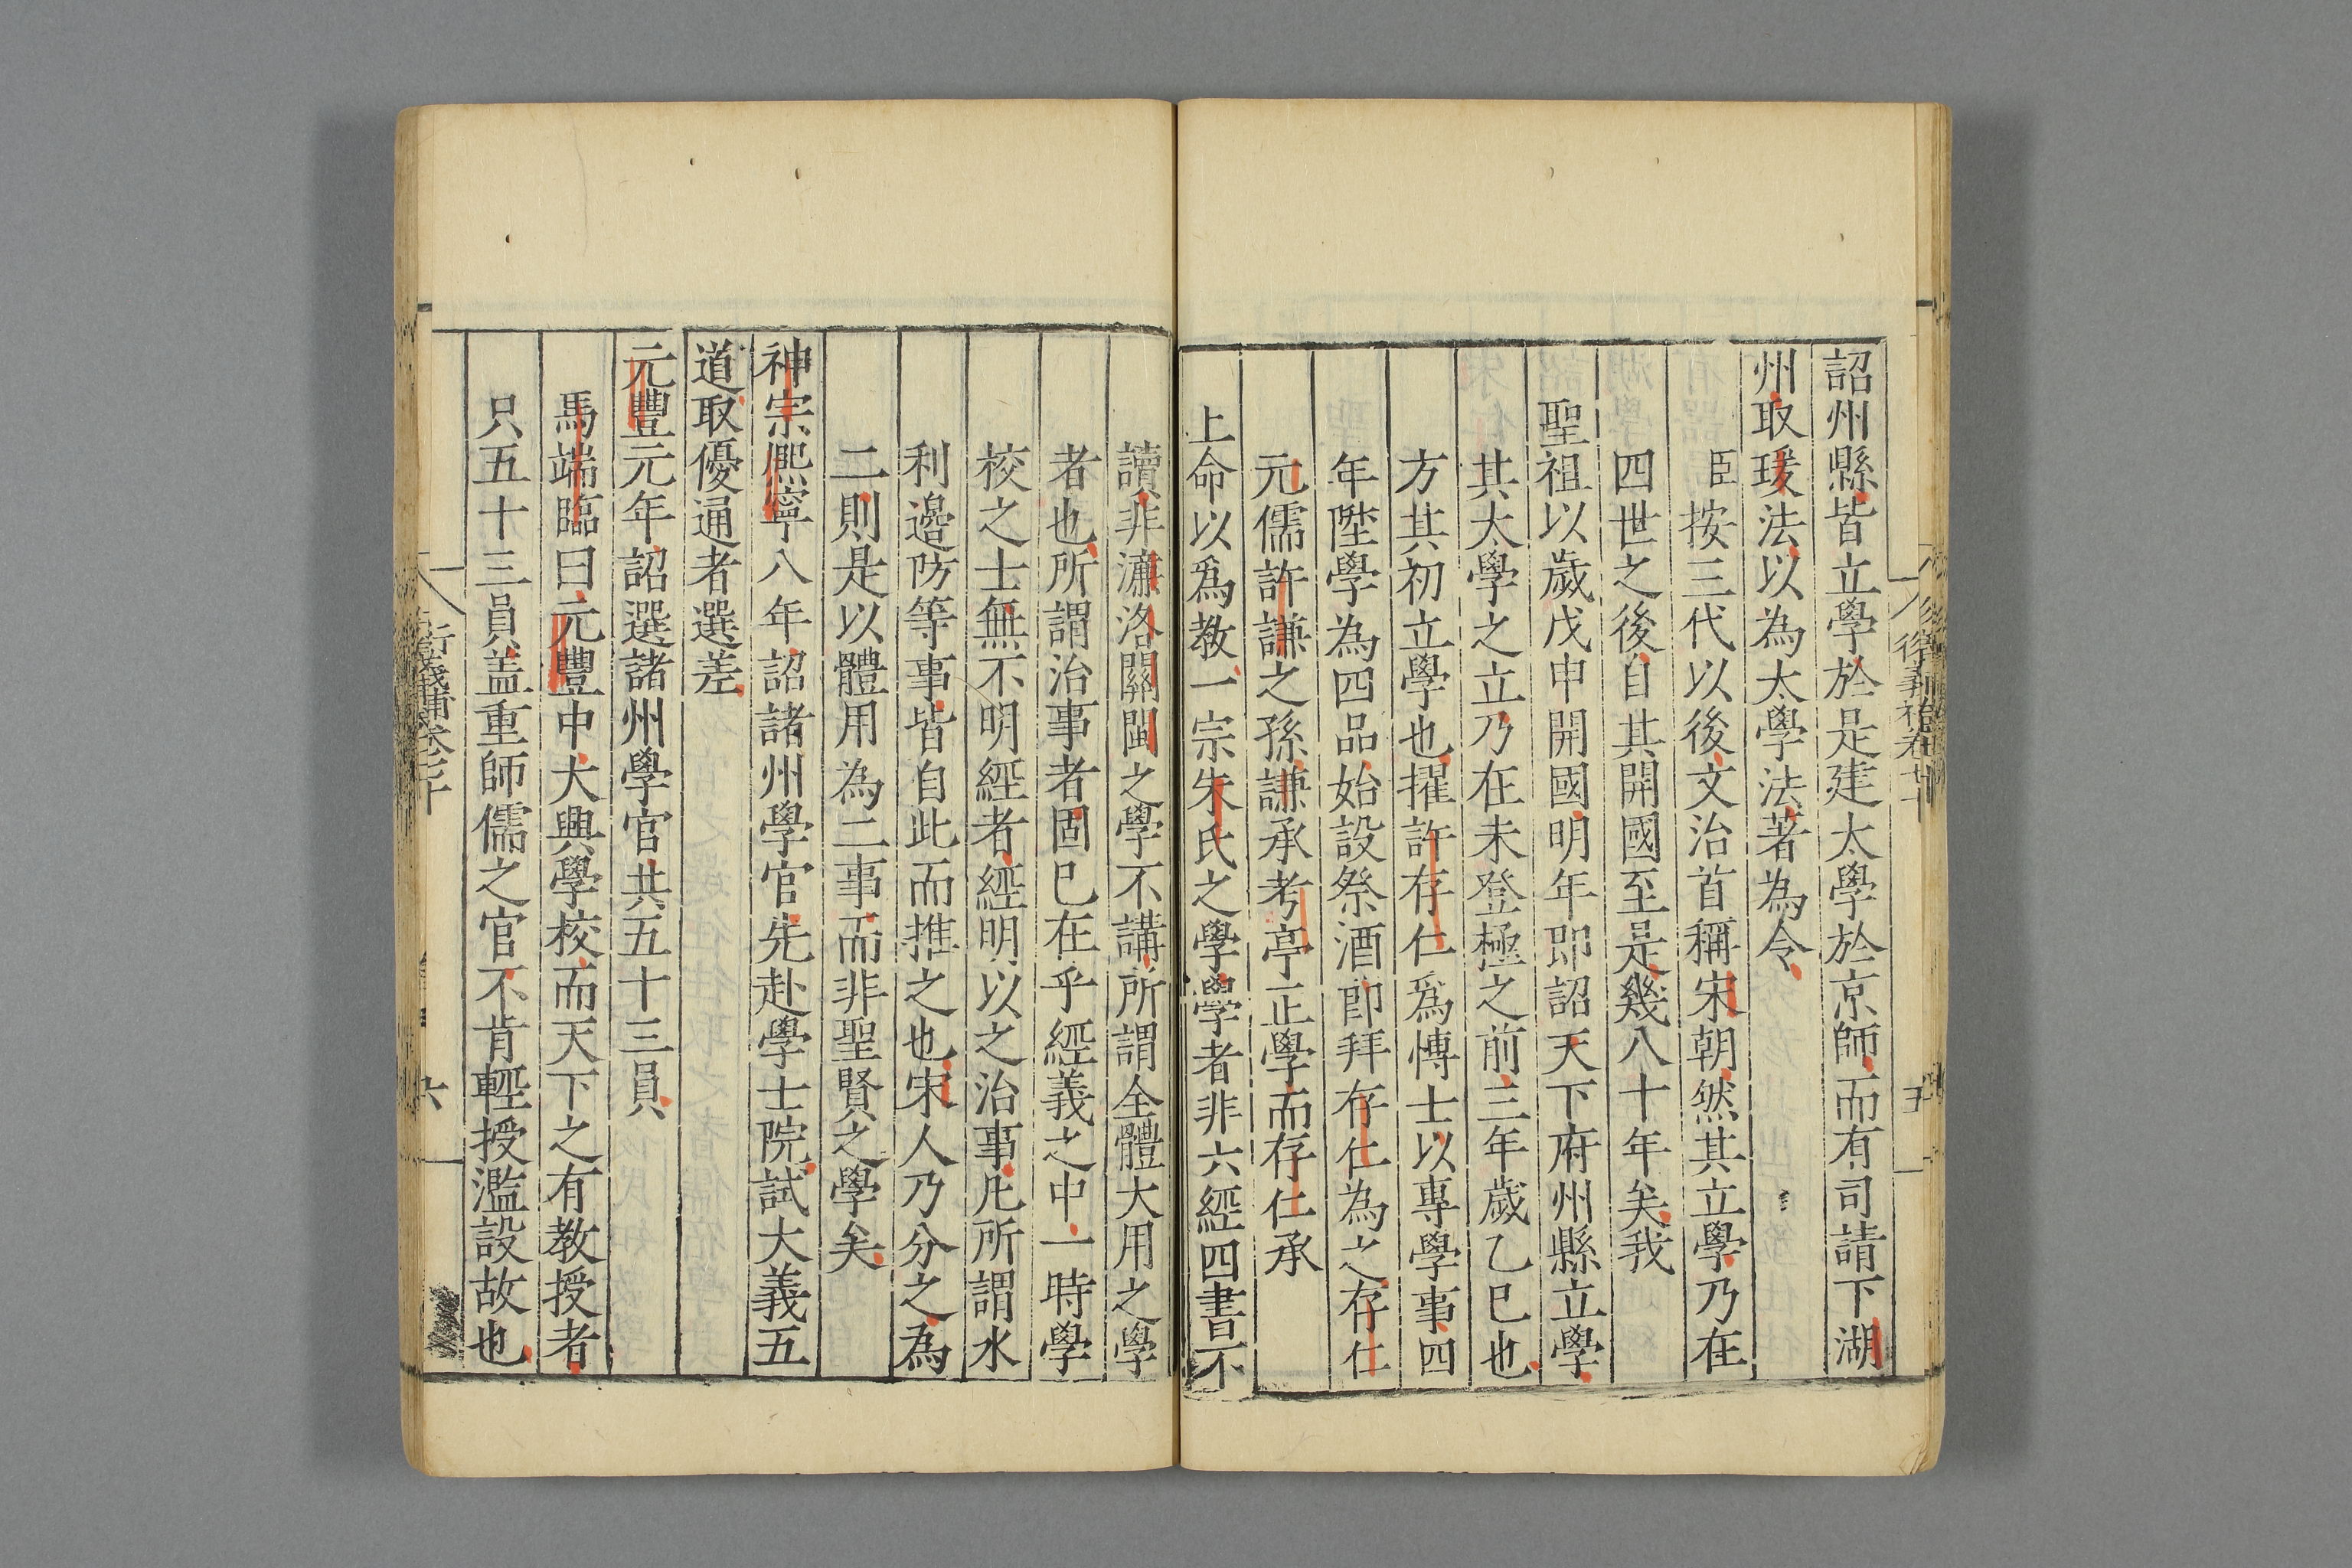 詔州縣皆立學於是建太學於京師而有司請下湖
州取瑗法以為太學法著為令
臣按三代以後文治首稱宋朝然其立學乃在
四世之後自其開國至是幾八十年矣我
聖祖以歲戊申開國明年即詔天下府州縣立學
其太學之立乃在未登極之前三年歲乙巳也
方其初立學也擢許存仁爲博士以專學事四
年陞學為四品始設祭酒即拜存仁為之存仁
元儒許謙之孫謙承考亭正學而存仁承
上命以爲教一宗朱氏之學學者非六經四書不
讀非濂洛關閩之學不講所謂全體大用之學
者也所謂治事者固已在乎經義之中一時學
校之士無不明經者經明以之治事凡所謂水
利邊防等事皆自此而推之也宋人乃分之為
二則是以體用為二事而非聖賢之學矣
神宗熙寧八年詔諸州學官先赴學士院試大義五
道取優通者選差
元豐元年詔選諸州學官共五十三員
馬端臨曰元豐中大興學校而天下之有教授者
只五十三員盖重師儒之官不肯輕授濫設故也
五
六